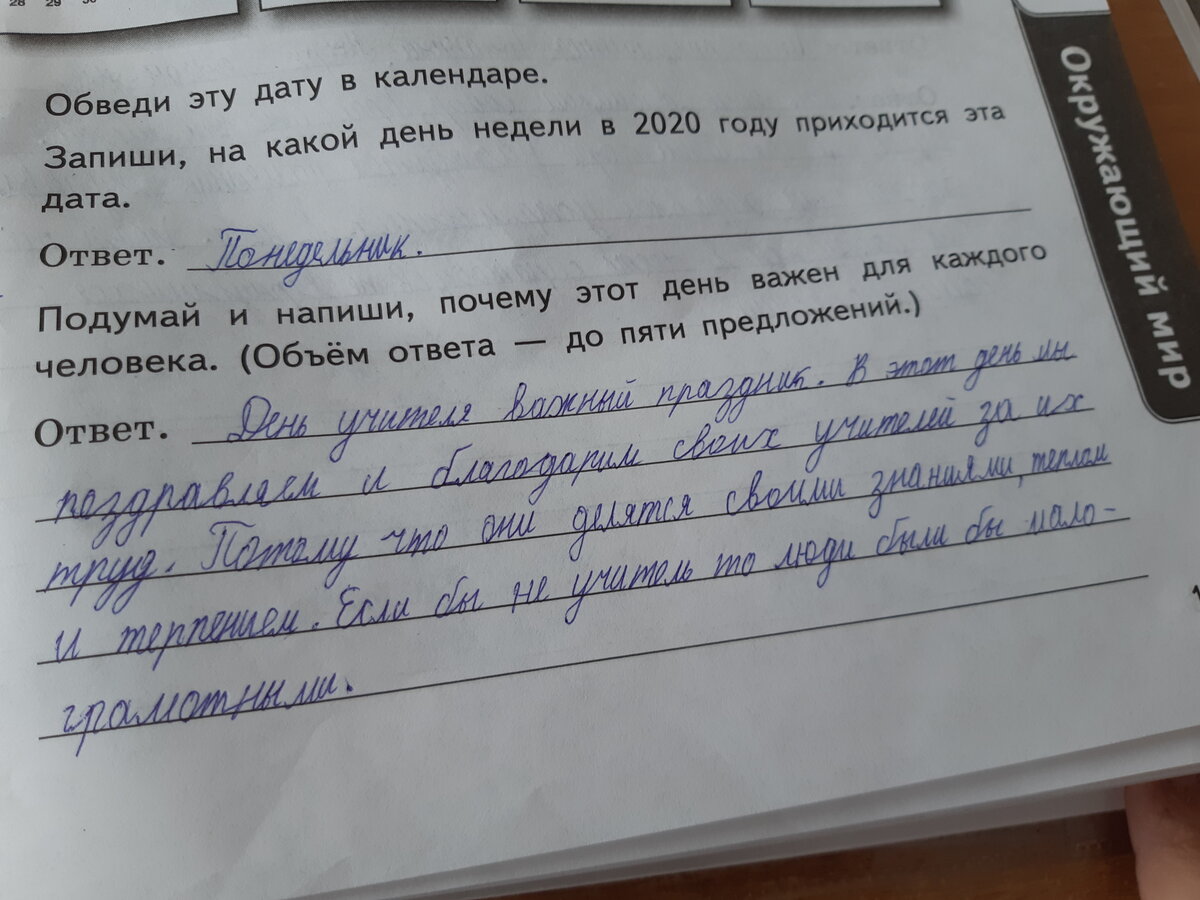 28 29 30
Обведи эту дату в календаре.
Запиши, на какой день недели в 2020 году приходится эта
дата.
Ответ. Понедельник.
Подумай и напиши, почему этот день важен для каждого
человека. (Объём ответа — до пяти предложений.)
Ответ. День учителя важный праздник. В этот день мы
поздравляем и благодарим своих учителей за их
труд. Потому что они делятся своими знаниями, теплом
и терпением. Если бы не учитель то люди были бы мало-
грамотными.
Окружающий мир